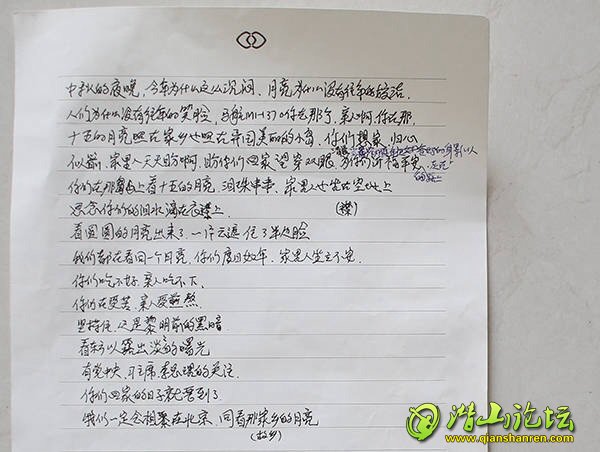 中秋的夜晚,今年为什么这么沉闷,月亮为什么没有往年的皎洁.
人们为什么没有往年的笑脸,马航MH-370你在那了,亲人啊,你在那
十五的月亮照在家乡也照在异国美丽的小岛,你们想家,归心
似箭,家里人天天盼啊,盼你们回家望穿双眼
为你们祈福平安
你们在那岛上看十五的月亮,泪珠串串,家里人坐在
思念你们的泪水滴在衣襟上.
(襟)
看圆圆的月亮出来了一片云遮住了半边脸
我们都在看同一个月亮,你们度日如年,家里人坐立不安
你们吃不好,亲人吃不下,
你们在受苦,亲人受煎熬
坚持住,这是黎明前的黑暗
看东方以露出淡淡的曙光
有党中央,习主席,李总理的关注
你们回家的日子就要到了
我们一定会相聚在北京,同看那家乡的月亮
(故乡)
潜山论坛
www.qianshanren.com